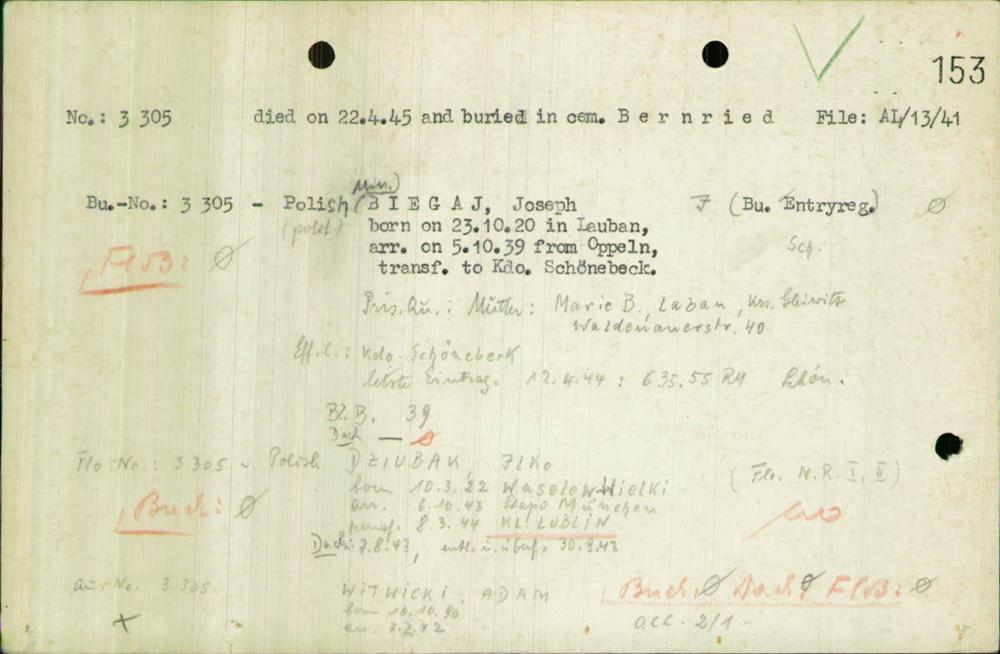 153
No.: 3 305 died on 22.4.45 and buried in cem. B e r n r i e d File: AL/13/41
Bu.-No.: 3 305 - Polish B I E G A J, Joseph (Bu. Entryreg.) Ø
(polit.) born on 23.10.20 in Lauban,
arr. on 5.10.39 from Oppeln, Sch.
FloB: Ø transf. to Kdo. Schönebeck.
Pris. Qu.: Mutter: Marie B., Laban, Krs. Gleiwitz
40
Eff. C.: Kdo. Schönebeck
letzte Eintrag. 12.4.44: 635.55 RM
Bl. B. 39
Dach — Ø
Flo-No.: 3305 - Polish DZIUBAK, ILKO (Flo. N.R. I, II)
born 10.3.22
arr. 6.10.43 Stapo München
Buch: Ø transf. 8.3.44 KL. LUBLIN
Dach: 7.8.43,
Au-No. 3305 WITWICKI, ADAM Buch. Ø Dach Ø FloB: Ø
born 10.10.90
arr. 7.2.42 acc. 2/1